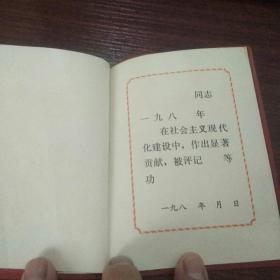 同志
一九八 年
在社会主义现代
化建设中，作出显著
贡献，被评记 等
功
一九八 年 月 日